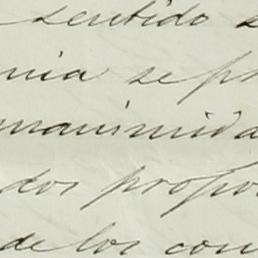 sentido s
nia se ph
manimida
dos propo
de los con